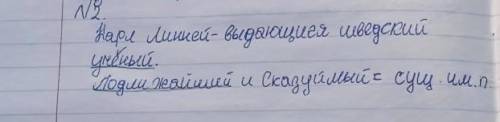 №2.
Карл Линней - выдающиеся шведский
учёный.
Подлижайший и Сказуймый = сущ. им. п.